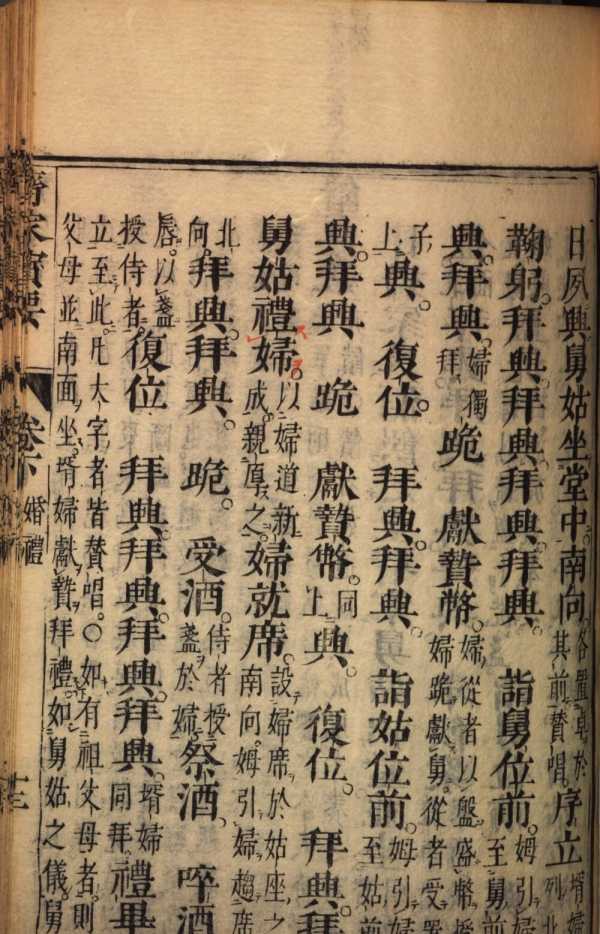 日夙興舅姑坐堂中南向各置卓於其前贊唱序立壻婦列北
鞠躬拜興拜興拜興拜興 詣舅位前姆引婦至舅前
興拜興婦獨拜跪 獻贄幣婦從者以盤盛幣授婦跪獻舅從者受置
子上興 復位 拜興拜興 詣姑位前姆引婦至姑前
興拜興 跪 獻贄幣同上興 復位 拜興拜
舅姑禮婦以婦道新成親厚之婦就席設婦席於姑座之南向姆引婦趨席
北向拜興拜興 跪 受酒侍者授盞於婦祭酒 啐酒
唇以盞授侍者復位 拜興拜興拜興拜興壻婦同拜禮畢
立至此凡大字者皆贊唱〇如有祖父母者則
父母並南面坐壻婦獻贄拜禮如舅姑之儀舅
齊家寶要 卷下 婚禮 十三